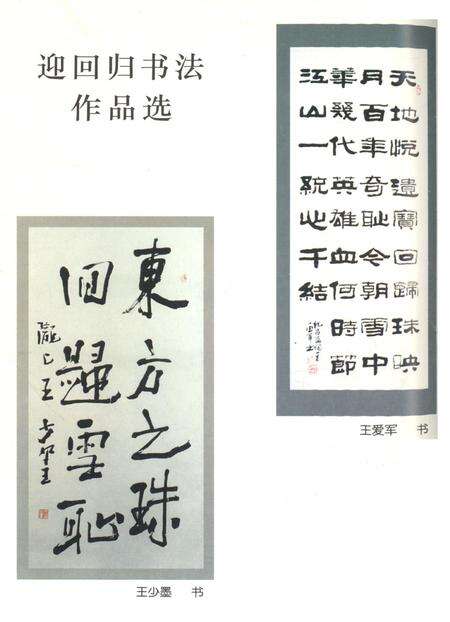 迎回归书法
作品选
天地悅遺寶回歸珠映
月百年奇恥今朝雪中
華幾代英雄血何時節
江山一統心千結
王爱军 书
東方之珠
回歸雪恥
王少墨 书